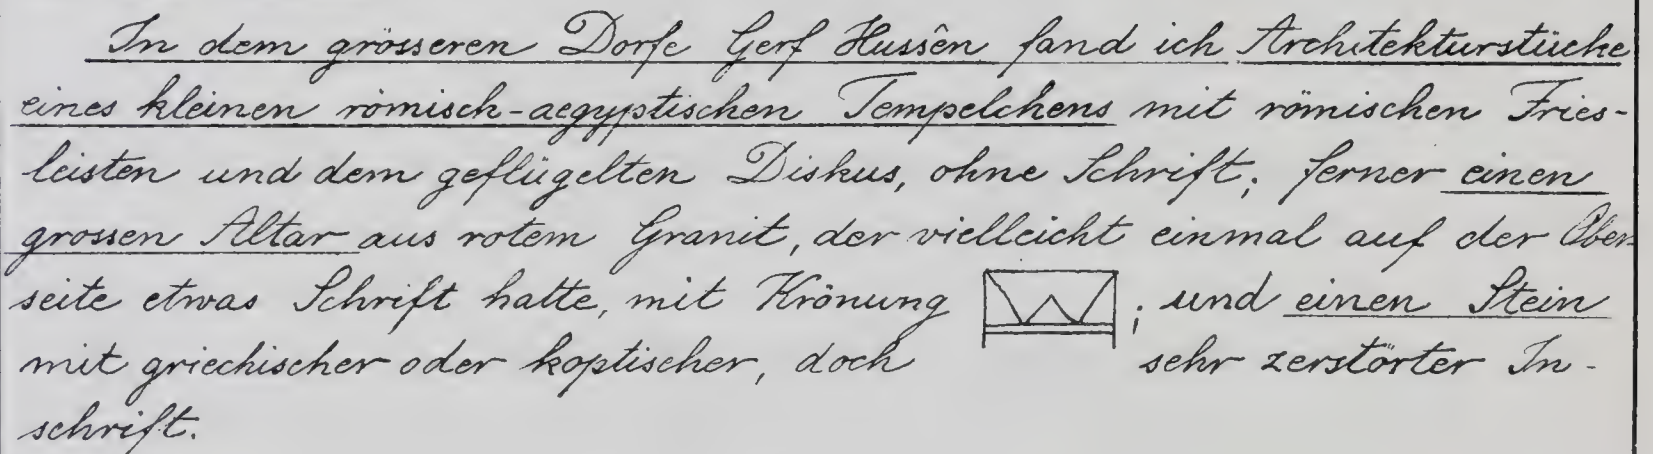 In dem grösseren Dorfe Gerf Hussên fand ich Architekturstücke
eines kleinen römisch-aegyptischen Tempelchens mit römischen Fries-
leisten und dem geflügelten Diskus, ohne Schrift; ferner einen
grossen Altar aus rotem Granit, der vielleicht einmal auf der Ober-
seite etwas Schrift hatte, mit Krönung ; und einen Stein
mit griechischer oder koptischer, doch sehr zerstörter In-
schrift.